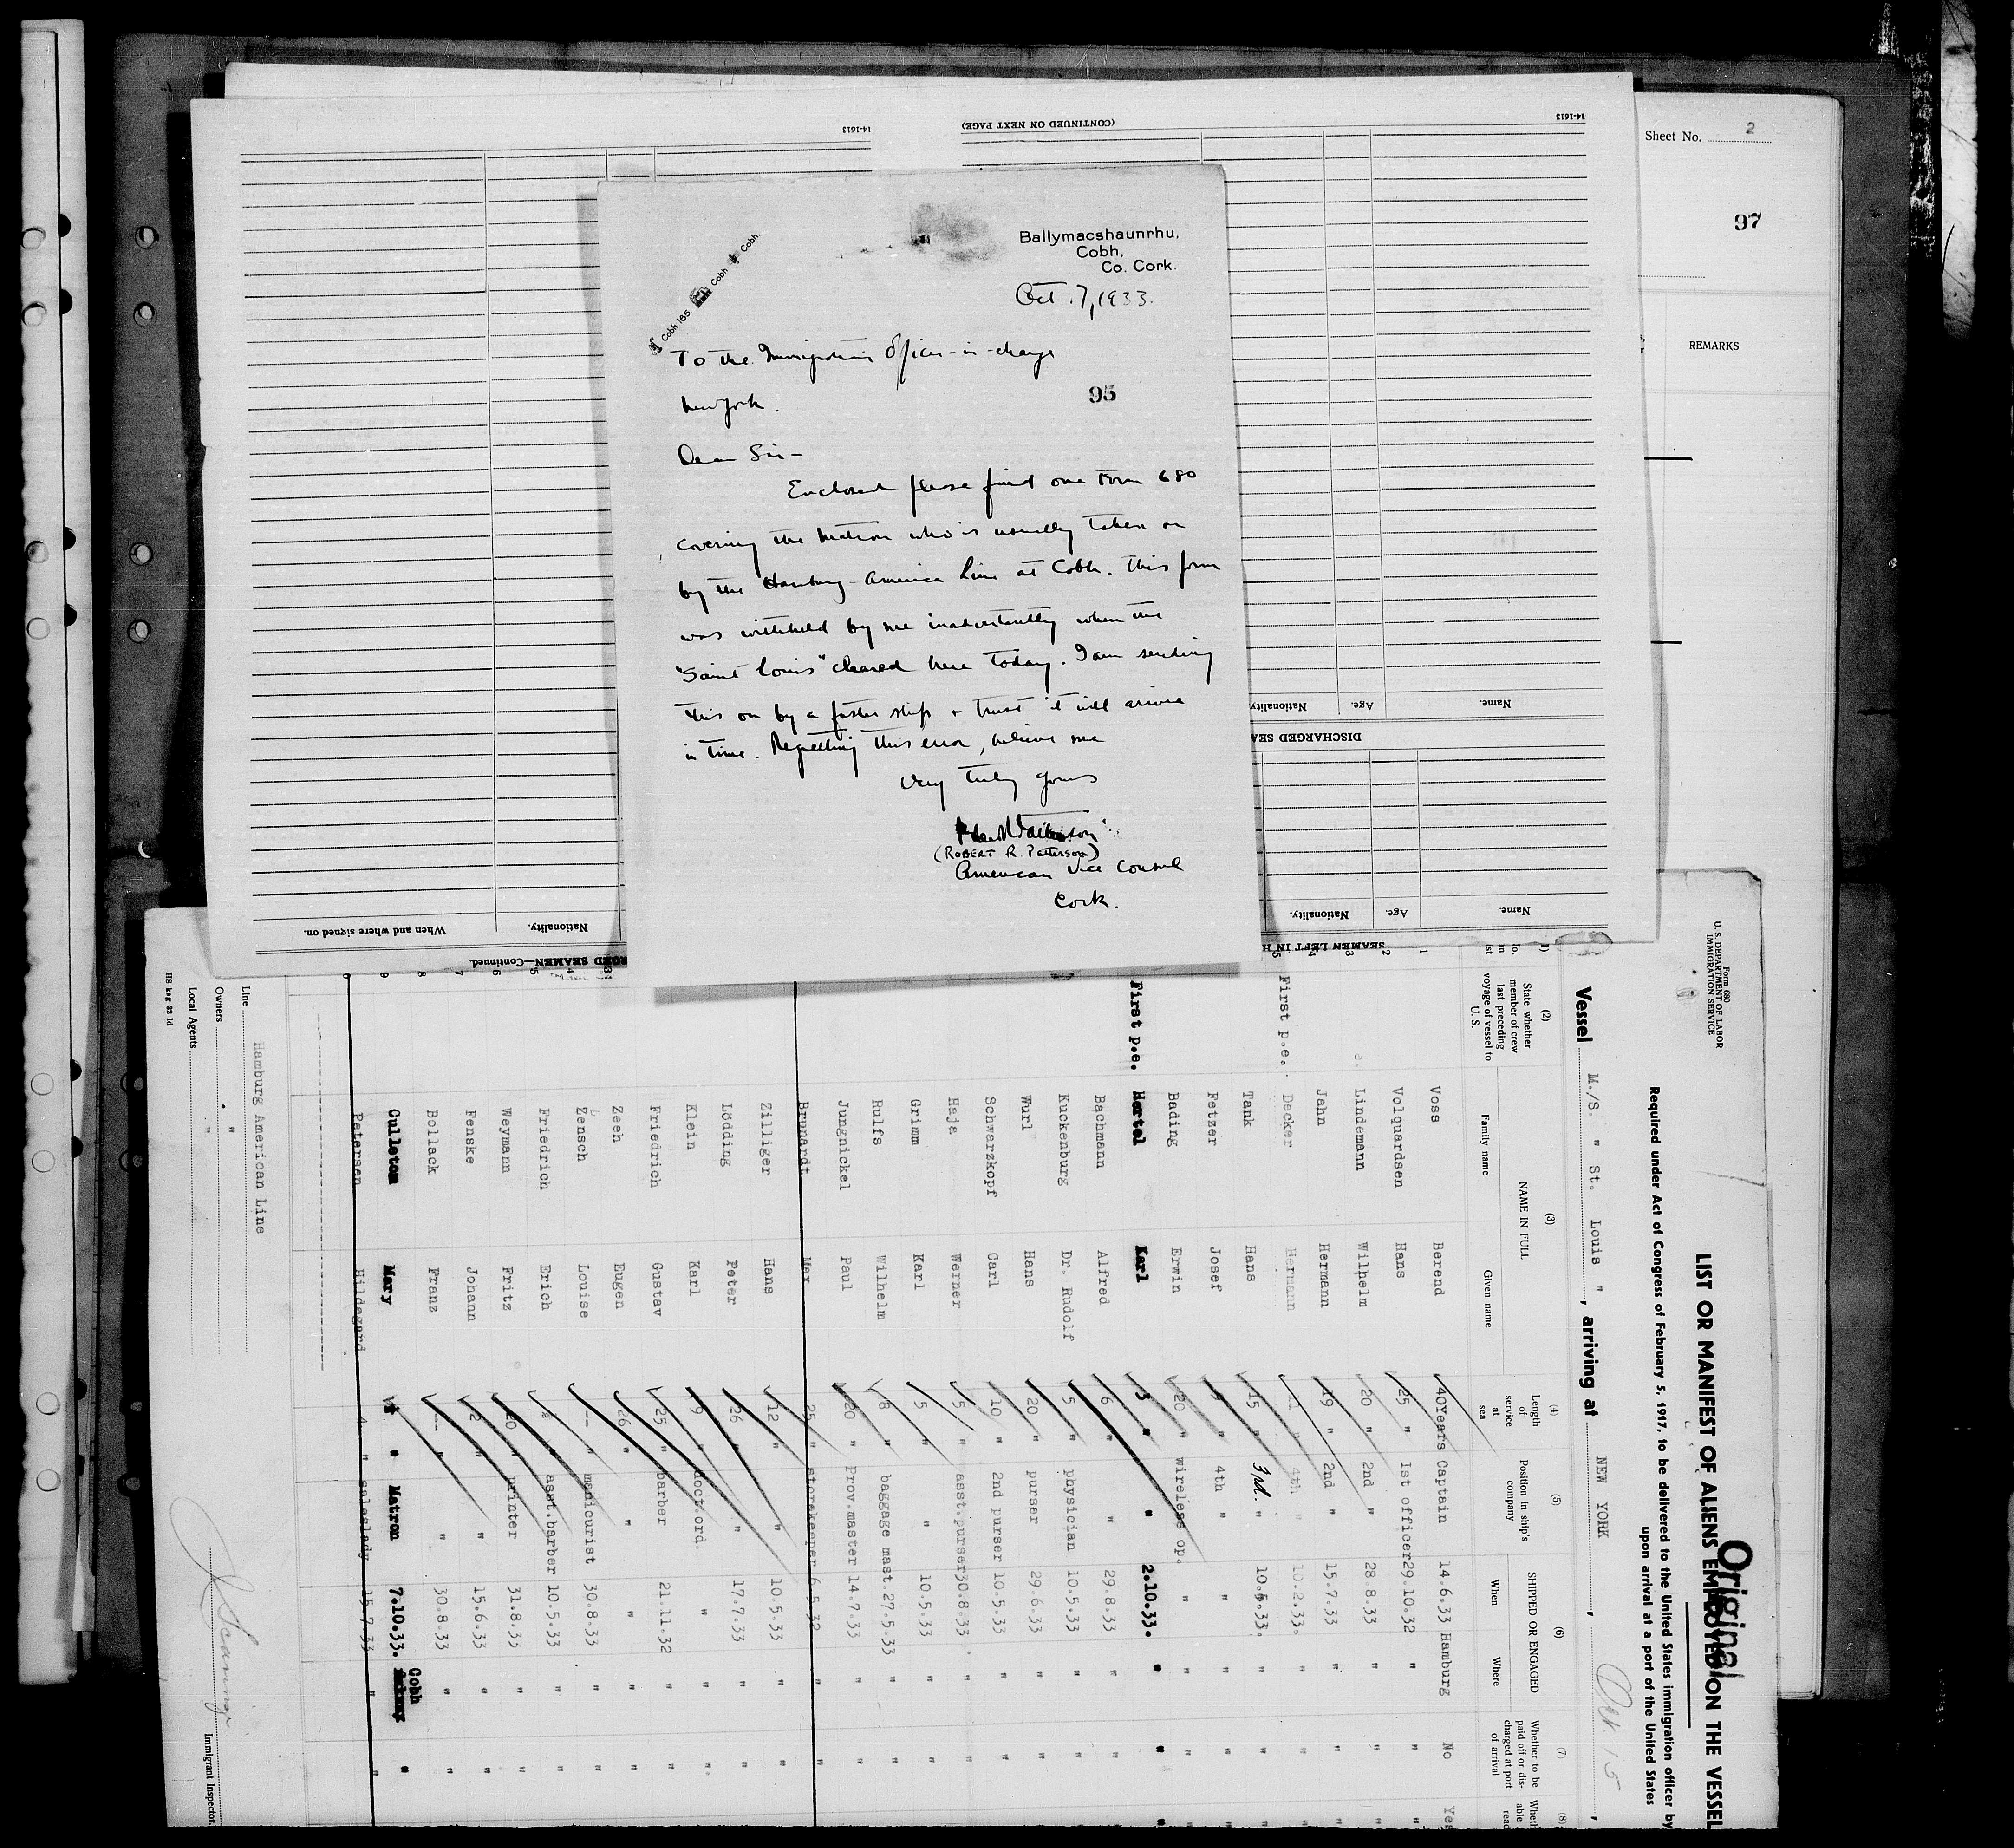 Sheet No. 2
97
REMARKS
14-1613
(CONTINUED ON NEXT PAGE)
14-1613
Cobh 165 Cobh Cobh.
Ballymacshaunrhu,
Cobh,
Co. Cork.
Oct. 7, 1933.
To the Immigration Officer-in-charge
New York.
95
Dear Sir-
Enclosed please find one Form 680
covering the Matron who is usually taken on
by the Hamburg-America Line at Cobh. This form
was withheld by me inadvertently when the
"Saint Louis" cleared here today. I am sending
this on by a faster ship + trust it will arrive
in time. Regretting this error, believe me
Very truly yours
(ROBERT R. Patterson)
American Vice Consul
Cork.
Name.
Age.
Nationality.
DISCHARGED SEA
Name.
Age.
Nationality.
SEAMEN LEFT IN H
When and where signed on.
Nationality.
RGED SEAMEN—Continued.
Form 680
U. S. DEPARTMENT OF LABOR
IMMIGRATION SERVICE
Original
LIST OR MANIFEST OF ALIENS EMPLOYED ON THE VESSEL
Required under Act of Congress of February 5, 1917, to be delivered to the United States immigration officer by
upon arrival at a port of the United States
Vessel M./S. " St. Louis ", arriving at NEW YORK, Oct 15,
(2) (3) (4) (5) (6) (7) (8)
State whether member of crew last preceding voyage of vessel to U. S.
NAME IN FULL
Family name
Given name
Length of service at sea
Position in ship's company
SHIPPED OR ENGAGED
When
Where
Whether to be paid off or discharged at port of arrival
1 Voss Berend 40Years Captain 14.6.33 Hamburg No Yes
2 Volquardsen Hans 25 " 1st officer 29.10.32 " "
3 Lindemann Wilhelm 20 " 2nd " 28.8.33 " "
4 Jahn Hermann 19 " 2nd " 15.7.33 " "
5 First p.e. Decker Hermann " 4th " 10.2.33. " "
Tank Hans 15 " 3rd. " 10.5.33. " "
Fetzer Josef 9 " 4th " " " "
Bading Erwin 20 " wireless op. " " "
First p.e. Hertel Karl 3 " " 2.10.33. " "
Bachmann Alfred 6 " " 29.8.33 " "
Kuckenburg Dr. Rudolf 5 " physician 10.5.33 " "
Wurl Hans 20 " purser 29.6.33 " "
Schwarzkopf Carl 10 " 2nd purser 10.5.33 " "
Haja Werner 5 " asst.purser 30.8.33 " "
Grimm Karl 5 " " 10.5.33 " "
Rulfs Wilhelm 8 " baggage mast. 27.5.33 " "
Jungnickel Paul 20 " Prov.master 14.7.33 " "
Brunardt Max 25 " storekeeper 6.5.32 " "
Zilliger Hans 12 " " 10.5.33 " "
Lödding Peter 26 " " 17.7.33 " "
Klein Karl 9 " doct.ord. " " "
Friedrich Gustav 25 " barber 21.11.32 " "
Zeeh Eugen 26 " " " " "
Zensch Louise -- " manicurist 30.8.33 " "
5 Friedrich Erich " asst.barber 10.5.33 " "
6 Weymann Fritz 20 " printer 31.8.33 " "
7 Fenske Johann 2 " " 15.6.33 " "
8 Bollack Franz -- " " 30.8.33 " "
9 Culleton Mary " Matron 7.10.33. Cobh "
Petersen Hildegard 4 " saleslady 15.7.33 " "
Line Hamburg American Line
Owners " "
Local Agents "
Immigrant Inspector.